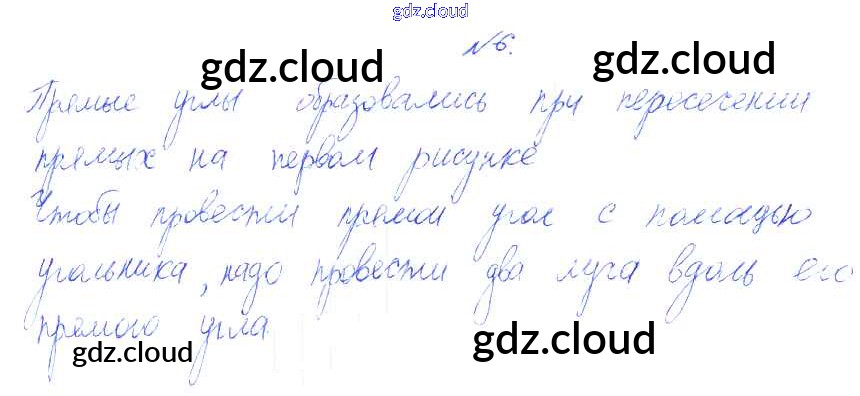 gdz.cloud
№6.
gdz.cloud gdz.cloud
Прямые углы образовались при пересечении
прямых на первом рисунке
Чтобы провести прямой угол с помощью
угольника, надо провести два луча вдоль его
прямого угла
gdz.cloud gdz.cloud